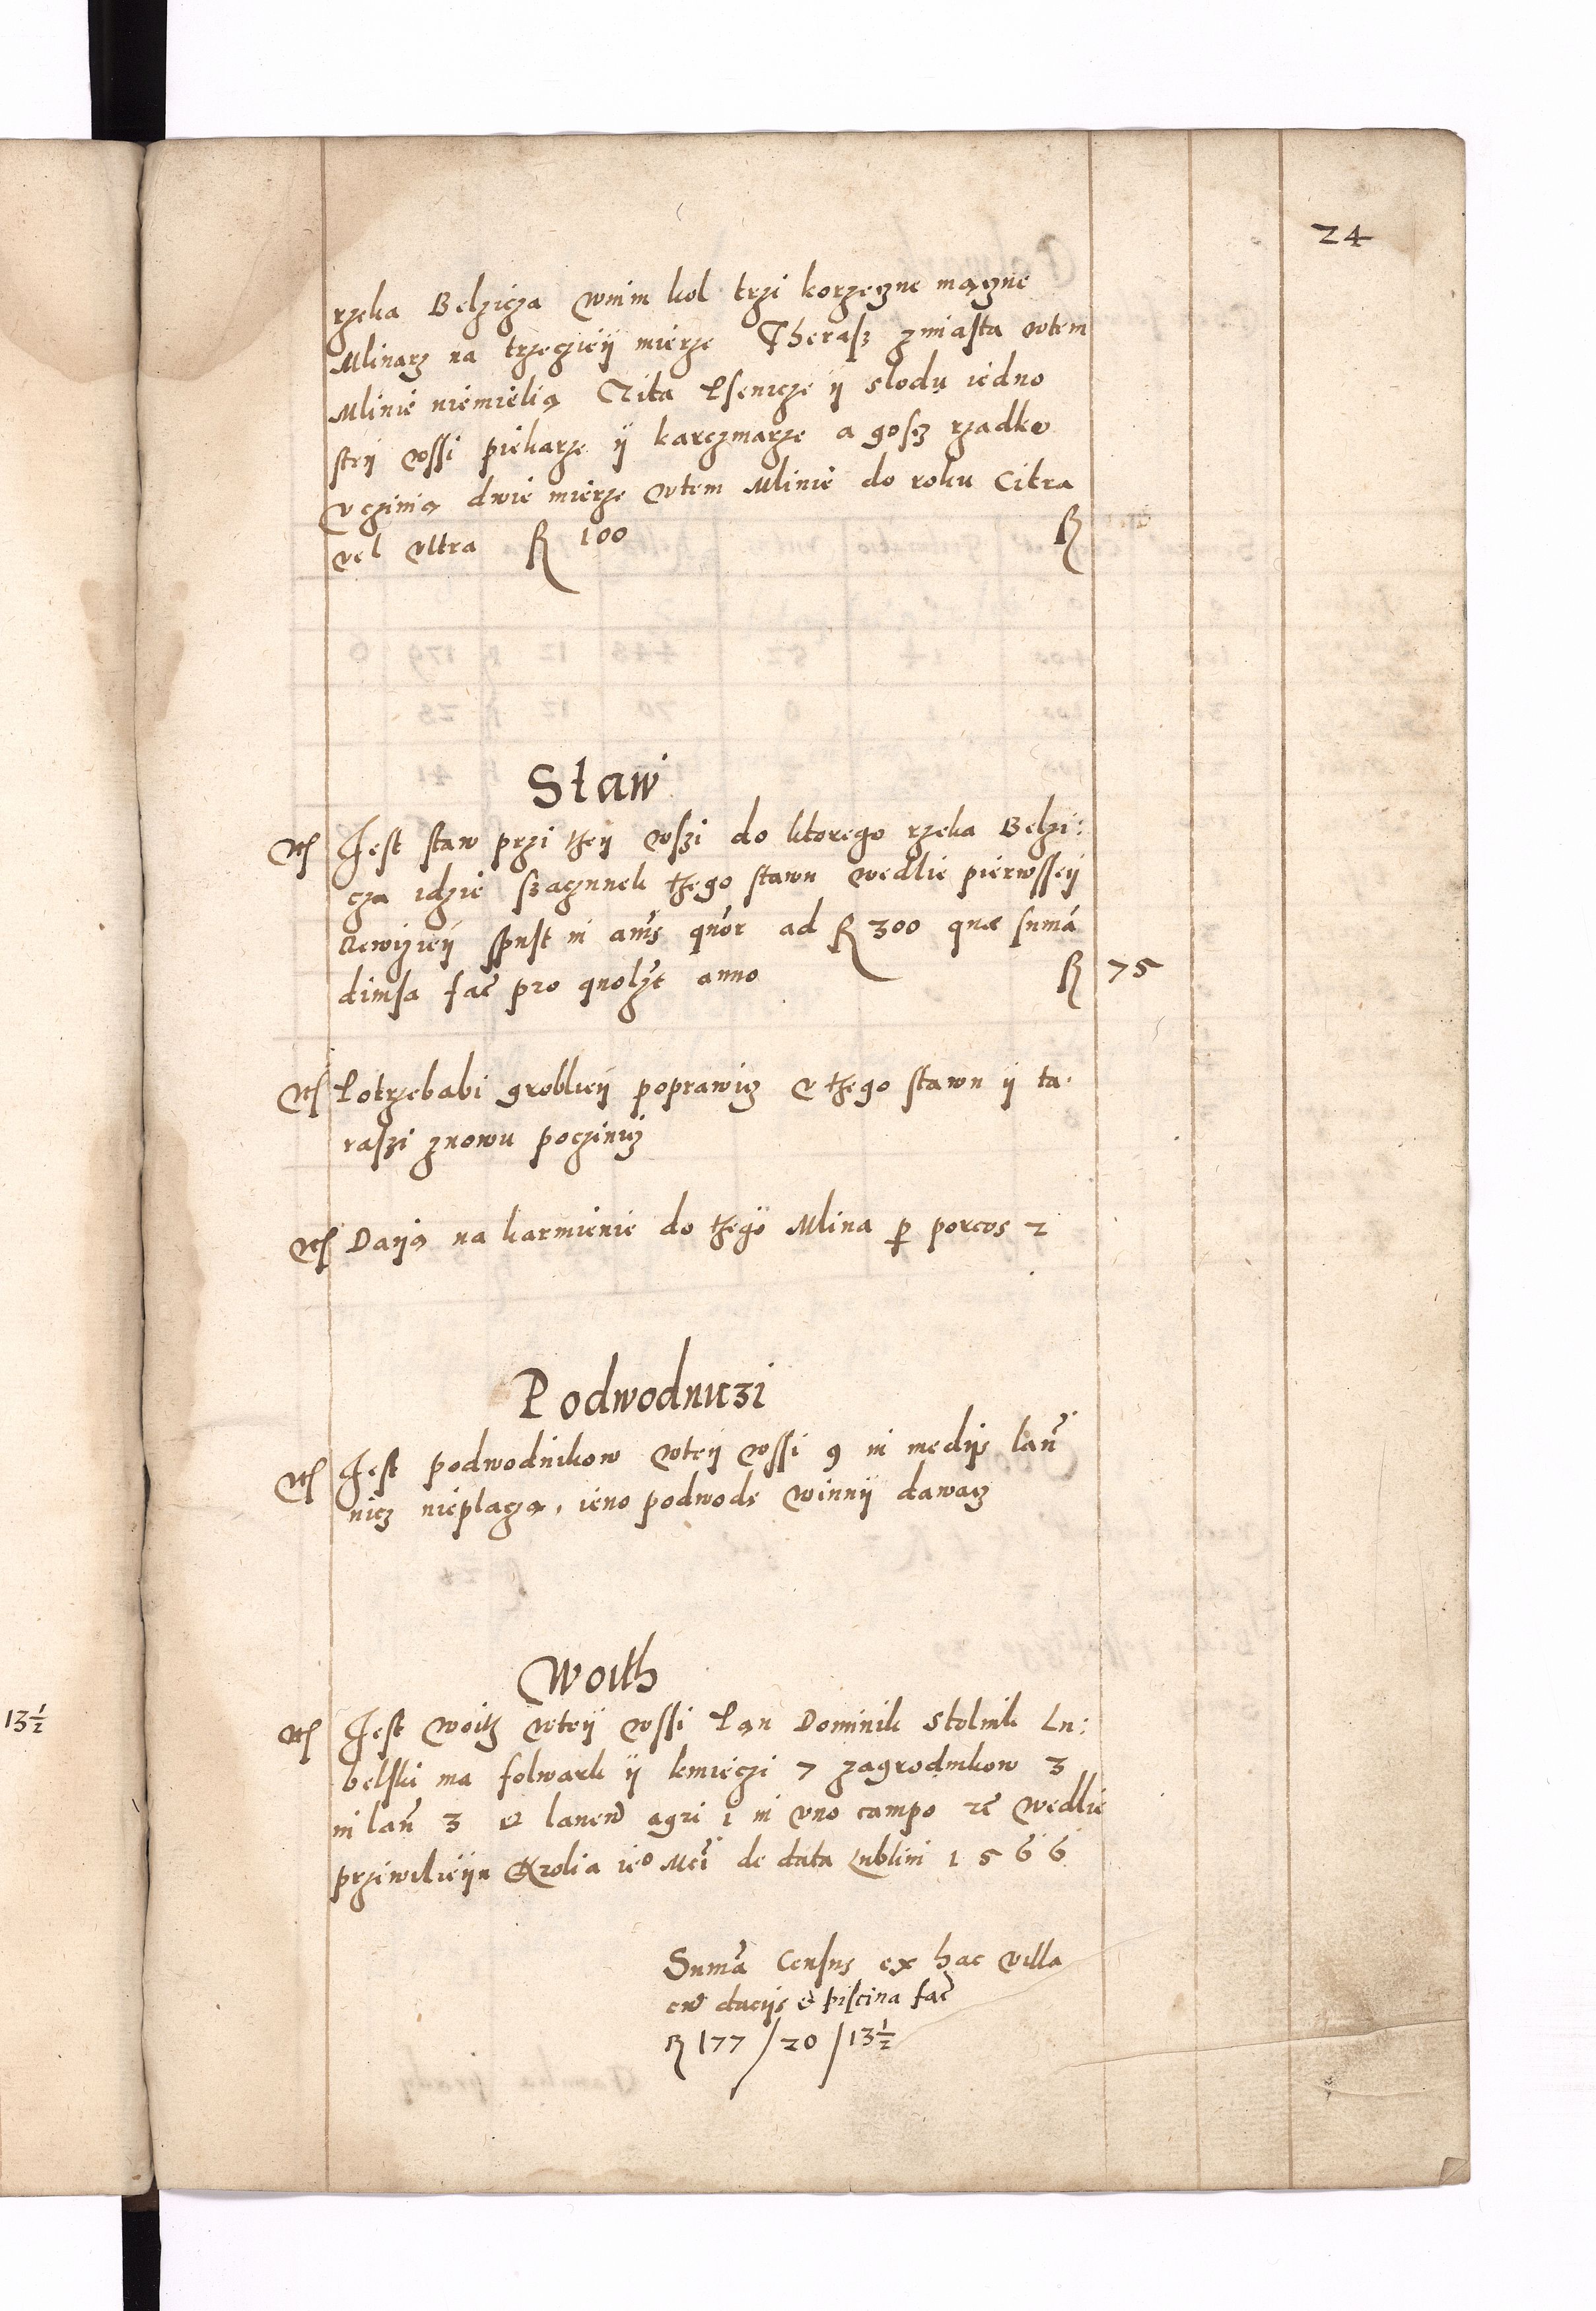 24
rzeka Belzicza wnim kol trzi korzeczne mączne
Mlinarz na trzecziey mierze Therasz zmiasta wtem
Mlinie niemielią Zita Psenicze ÿ slodu iedno
stey wssi piekarze ÿ karczmarze a goscz rzadko
vczinią dwie mierze wtem Mlinie do roku Citra
vel vltra R 100 R
Staw
Itē Jest staw przi they wszi do ktorego rzeka Belzi:
cza idzie szaczunek thego stawu wedlie pierwssey
Rewizieÿ spust in an̄is qūor ad R 300 quæ sum̄a
diuisa fac̄ pro quolz̄t anno R 75
Itē Potrzebabi groblieÿ poprawicz v thego stawu ÿ ta-
raszi znowu pocziniz
Itē Daÿą na karmienie do thego Mlina p porcos 2
Podwodniczi
Itē Jest podwodnikow wteÿ wssi 9 in medijs lan̄
nicz nieplaczą, ieno podwode winnÿ dawacz
Woith
13½
Itē Jest woitz wteÿ wssi Pan Dominik Stolnik Lu:
belski ma folwark ÿ kmieczi 7 zagrodnikow 3
in lan̄ 3 et laneū agri 1 in vno campo rē wedlie
przivilieÿu Krolia ie° Mci de data Lublini 1566
Sum̄a Census ex hac villa
cū dacijs et piscina fac̄
R 177 / 20 / 13½